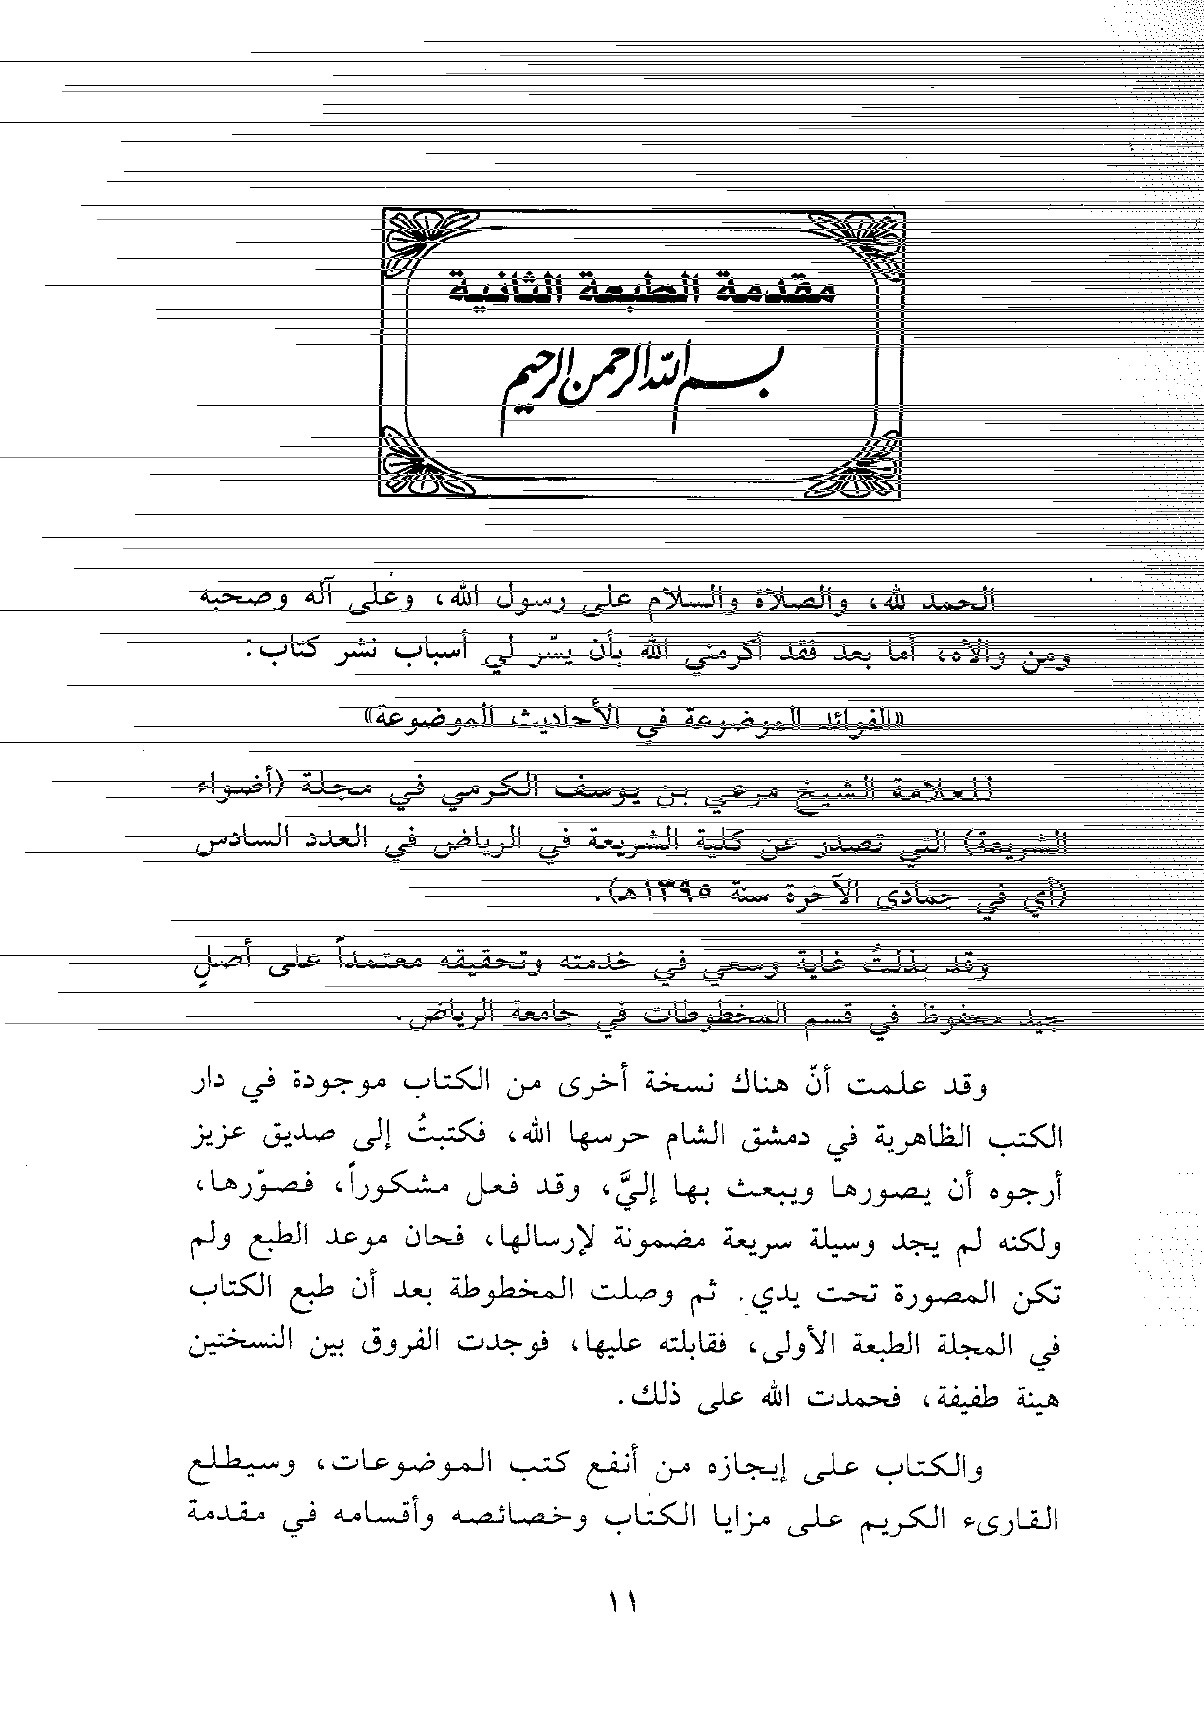 مقدمة الطبعة الثانية
بسم الله الرحمن الرحيم
الحمد لله، والصلاة والسلام على رسول الله، وعلى آله وصحبه
ومن والاه، أما بعد فقد أكرمني الله بأن يسّر لي أسباب نشر كتاب:
«الفوائد الموضوعة في الأحاديث الموضوعة»
للعلامة الشيخ مرعي بن يوسف الكرمي في مجلة (أضواء
الشريعة) التي تصدر عن كلية الشريعة في الرياض في العدد السادس
(أي في جمادى الآخرة سنة ١٣٩٥هـ).
وقد بذلتُ غاية وسعي في خدمته وتحقيقه معتمداً على أصلٍ
جيد محفوظ في قسم المخطوطات في جامعة الرياض.
وقد علمت أنّ هناك نسخة أخرى من الكتاب موجودة في دار
الكتب الظاهرية في دمشق الشام حرسها الله، فكتبتُ إلى صديق عزيز
أرجوه أن يصورها ويبعث بها إليَّ، وقد فعل مشكوراً، فصوّرها،
ولكنه لم يجد وسيلة سريعة مضمونة لإرسالها، فحان موعد الطبع ولم
تكن المصورة تحت يدي. ثم وصلت المخطوطة بعد أن طبع الكتاب
في المجلة الطبعة الأولى، فقابلته عليها، فوجدت الفروق بين النسختين
هينة طفيفة، فحمدت الله على ذلك.
والكتاب على إيجازه من أنفع كتب الموضوعات، وسيطلع
القارىء الكريم على مزايا الكتاب وخصائصه وأقسامه في مقدمة
١١